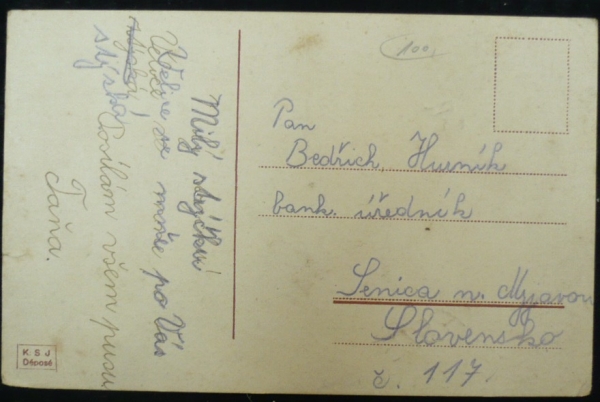 Milý strýčku
Utělice se moc po Vás
stýská. Posílám všem pusu
Táňa.
100
Pan
Bedřich Hurník
bank. úředník
Senica n. Myjavou
Slovensko
č. 117.
K S J
Déposé